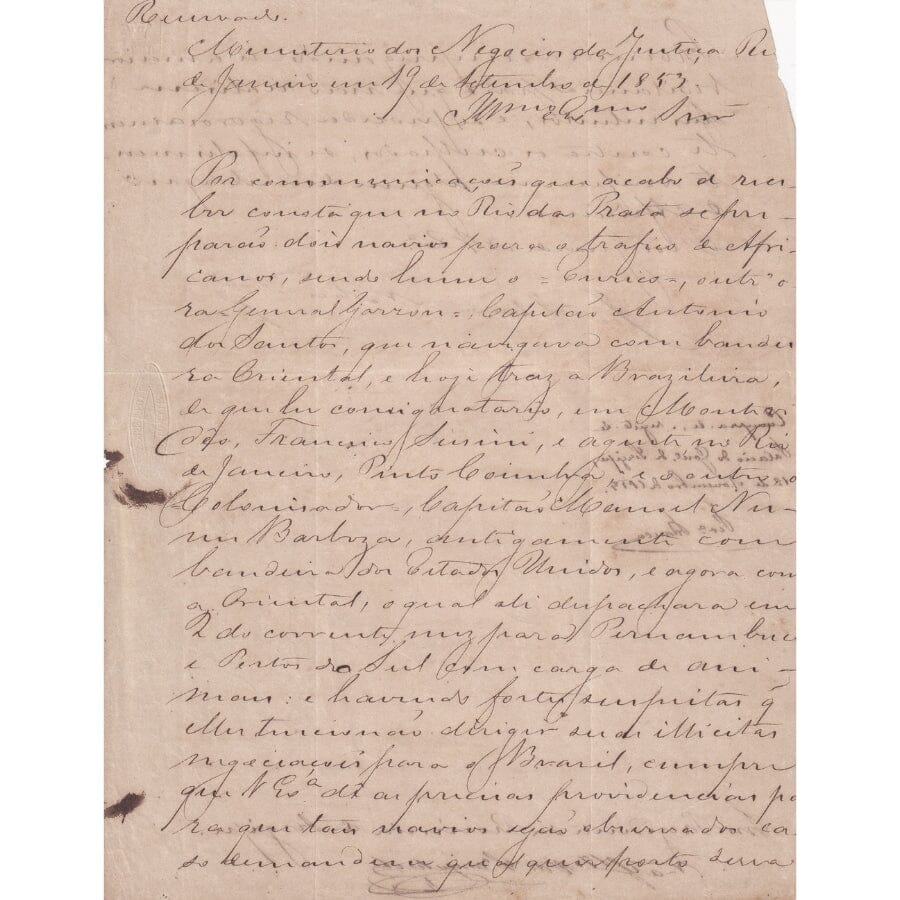 Reservado.
Ministerio dos Negocios da Justiça, Rio
de Janeiro em 19 de Setembro de 1853
Illmo Exmo Snr
Por communicações que acabo de rece-
ber consta que no Rio da Prata se pre-
parão dois navios para o trafico de Afri-
canos, sendo hum o = Eurico =, outr'o
ra General Garzon =, Capitão Antonio
dos Santos, que navegava com bandei
ra Oriental, e hoje traz a Brazileira,
de que he consignatario, em Montevi
déo, Francisco Sisini, e aqui no Rio
de Janeiro, Pinto Coimbra, e o outro
= Colonisador =, Capitão Manoel Nu-
nes Barboza, antigamente com
bandeira dos Estados Unidos, e agora com
a Oriental, o qual ali despachara em
2 do corrente mez para Pernambuco
e Portos do Sul com carga de ani-
maes: e havendo fortes suspeitas q̃
elles tencionão dirigir suas illicitas
negociações para o Brasil, cumpre
que V Exª dê as precisas providencias pa
ra que taes navios sejão observados ca-
so demandem qualquer porto dessa